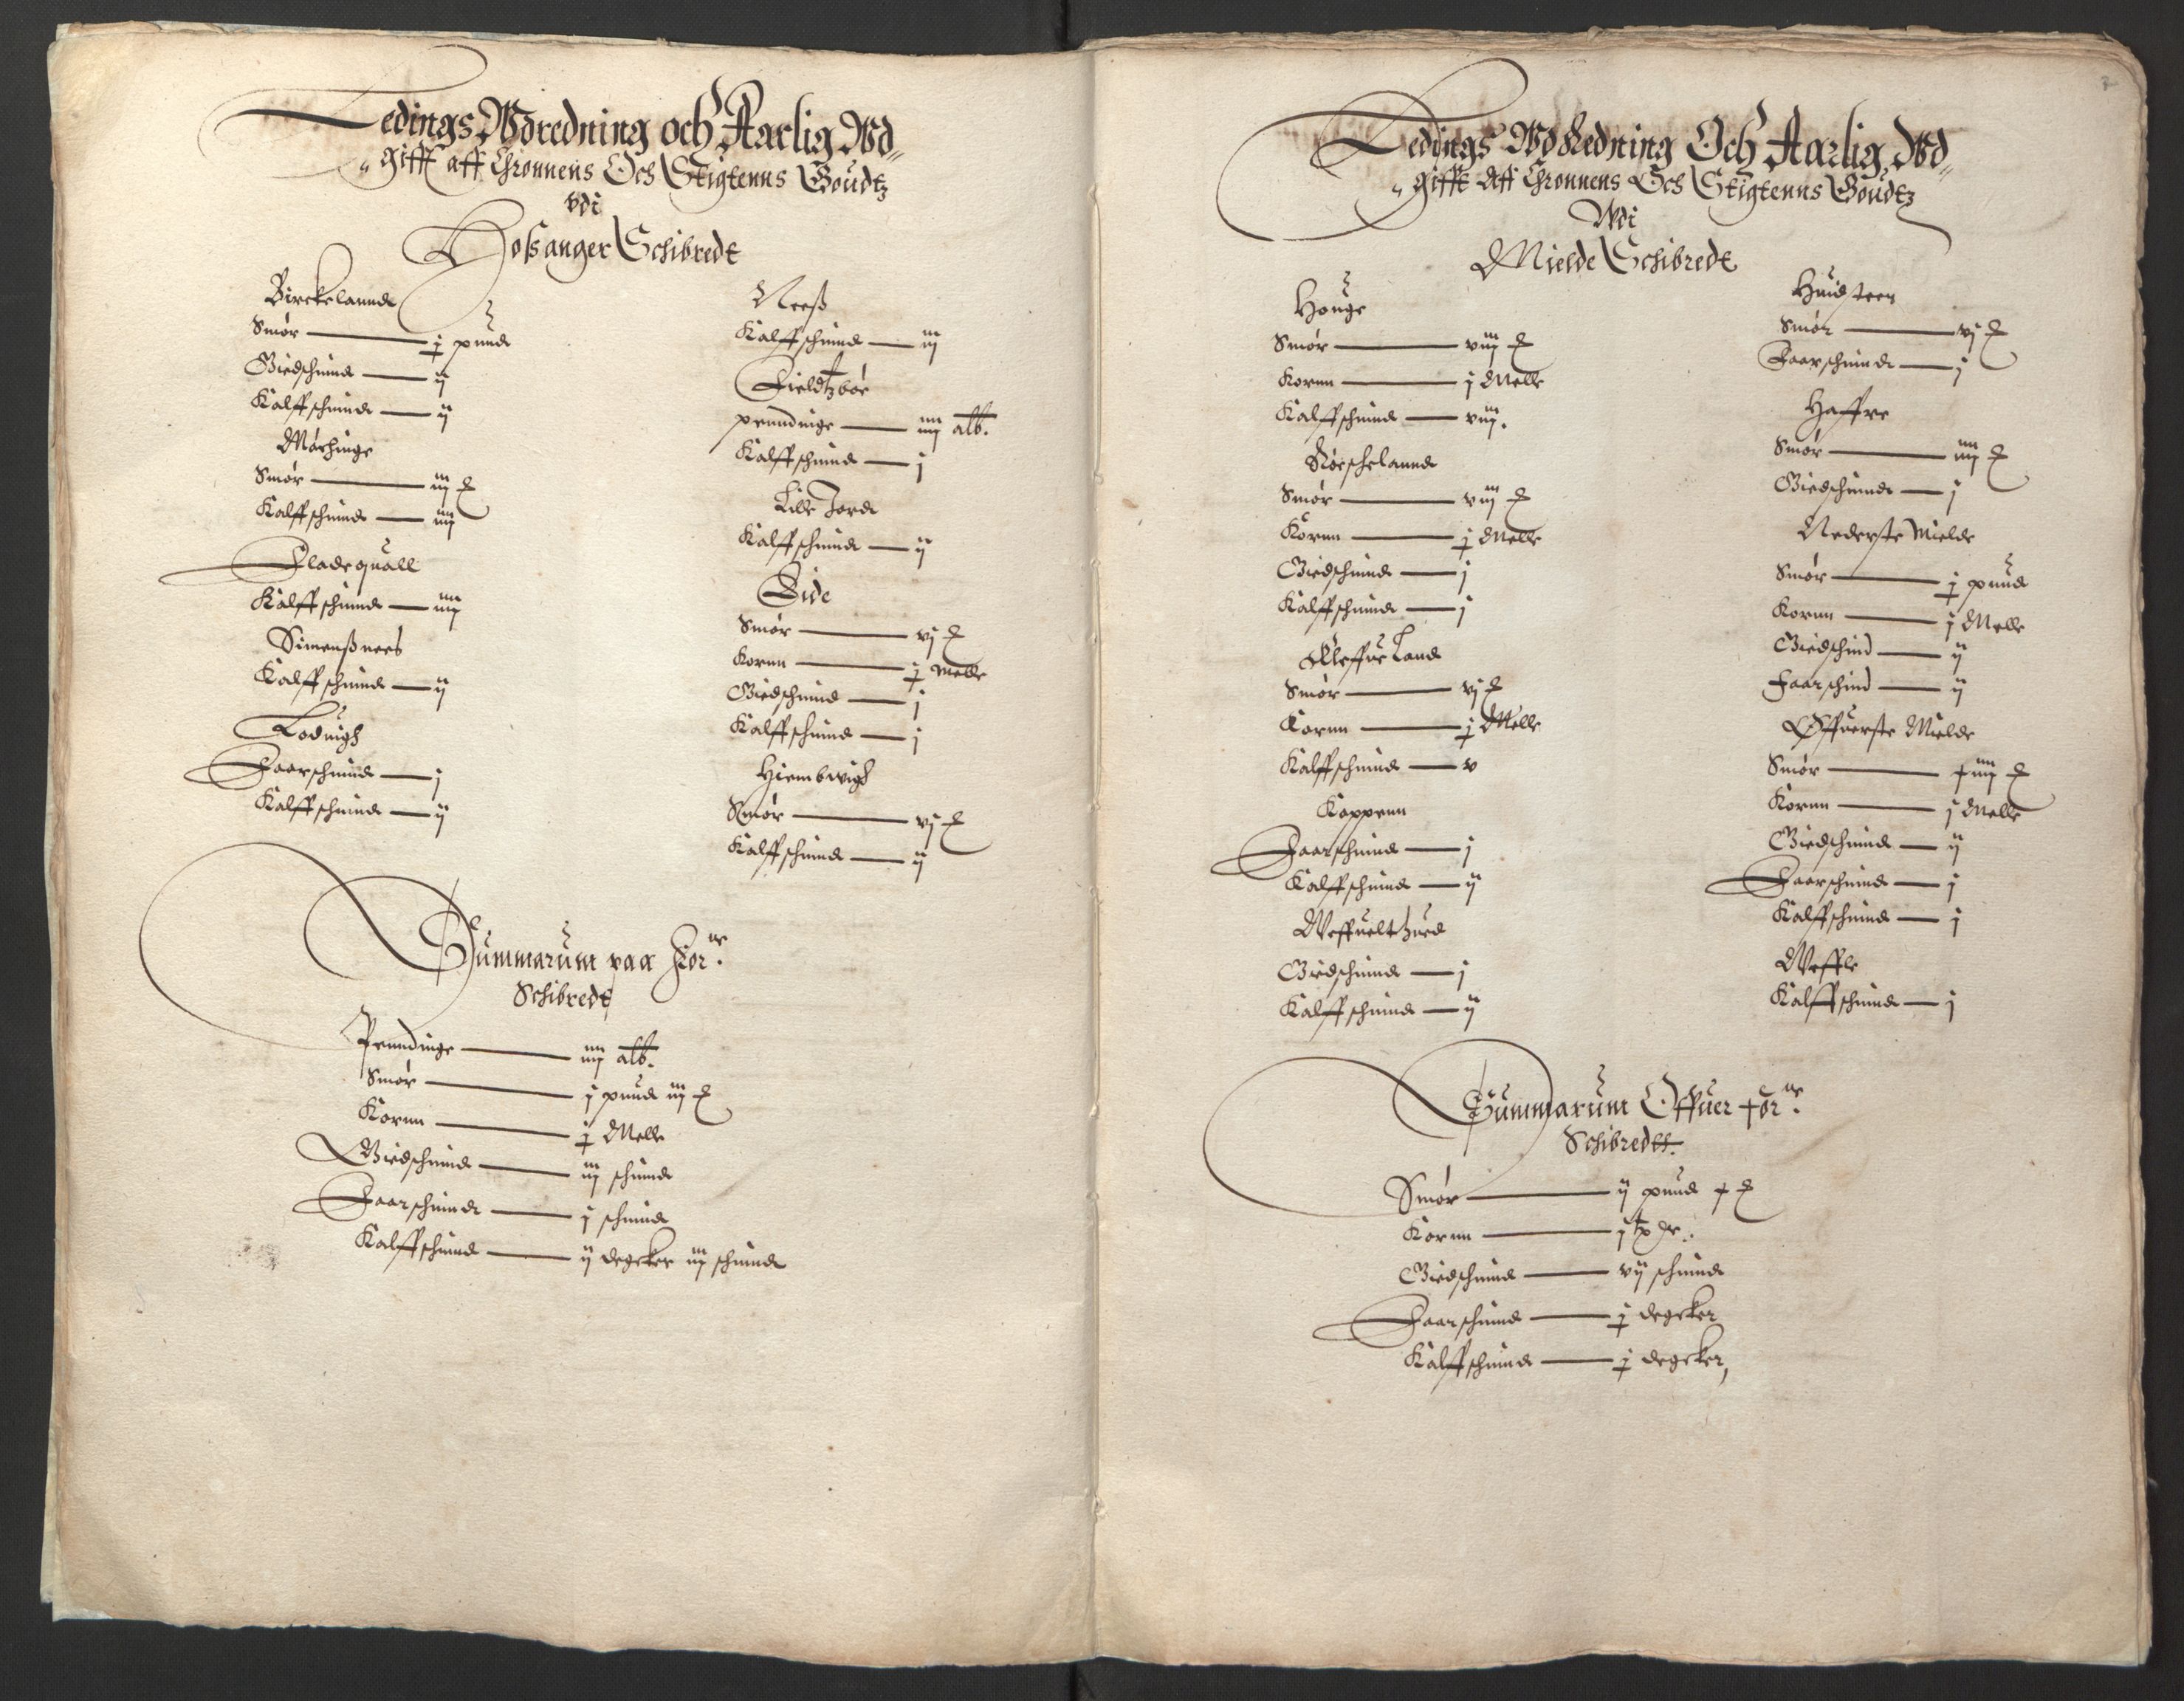 Ledings Wdredning och Aarlig Wd„
„gifft aff Chronnens Och Stigtenns Goudtz
vdi
Hoßanger Schibredt
Birckelannd
Smør — ɉ pund
Giedschind — ij
Kalffschind — ij
Mørchinge
Smør — iij
Kalffschind — iiij
Fladequall
Kalffschind — iiij
Simenßnees
Kalffschind — ij
Loduigh
Faarschind — j
Kalffschind — ij
Neeß
Kalffschind — iij
Fieldtzboe
penndinge — iiij alb.
Kalffschind — j
Lille Jord
Kalffschind — ij
Eide
Smør — vj
Kornn — ɉ Melle
Giedschind — j
Kalffschind — j
Hiembvigh
Smør — vj
Kalffschind — ij
Summarum paa for:ne
Schibredt
Penndinge — iiij alb.
Smør — j pund iij
Kornn — ɉ Melle
Giedschind — iij schind
Faarschind — j schind
Kalffschind — ij degcker iij schind
2
Ledings WdRedning Och Aarlig Wd„
„gifft Aff Chronnens Och Stigtenns Goudtz
Wdi
Mielde Schibredt
Houge
Smør — viij
Kornn — j Melle
Kalffschind — viij.
Røeschelannd
Smør — viij
Kornn — ɉ Melle
Giedschind — j
Kalffschind — j
Kleffue Land
Smør — vj
Kornn — ɉ Melle
Kalffschind — v
Koppenn
Faarschind — j
Kalffschind — ij
Giedschind — j
Kalffschind — ij
Huidsteen
Smør — vj
Faarschind — j
Haffre
Smør — iiij
Giedschind — j
Nederste Mielde
Smør — ɉ pund
Kornn — j Melle
Giedschind — ij
Faarschind — ij
Øffuerste Mielde
Smør — xiiij
Kornn — j Melle
Giedschind — ij
Faarschind — j
Kalffschind — j
Weffle
Kalffschind — j
Summarum Offuer for:ne
Schibredtt.
Smør — ij pund x
Kornn — j
Giedschind — vij schind
Faarschind — ɉ degcker
Kalffschind — ɉ degcker,